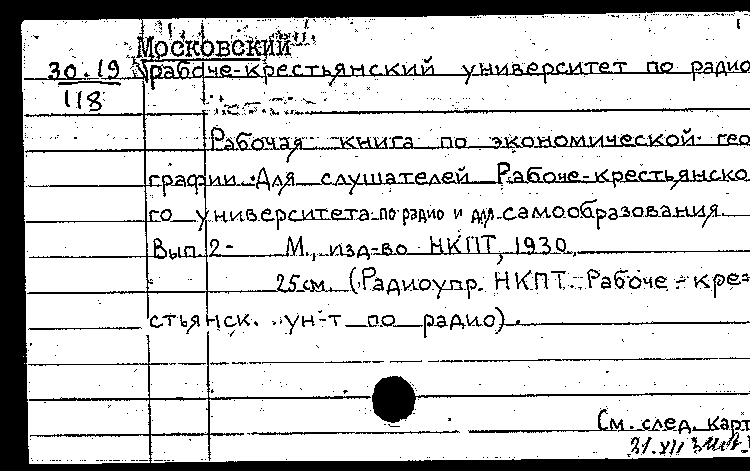 Московский
30.19 рабоче-крестьянский университет по радио
118
Рабочая книга по экономической гео
графии. Для слушателей Рабоче-крестьянско
го университета по радио и для самообразования.
Вып. 2- М., изд-во НКПТ, 1930.
25см. (Радиоупр. НКПТ. Рабоче-кре=
стьянск. ун-т по радио).
См. след. карт
21.XII